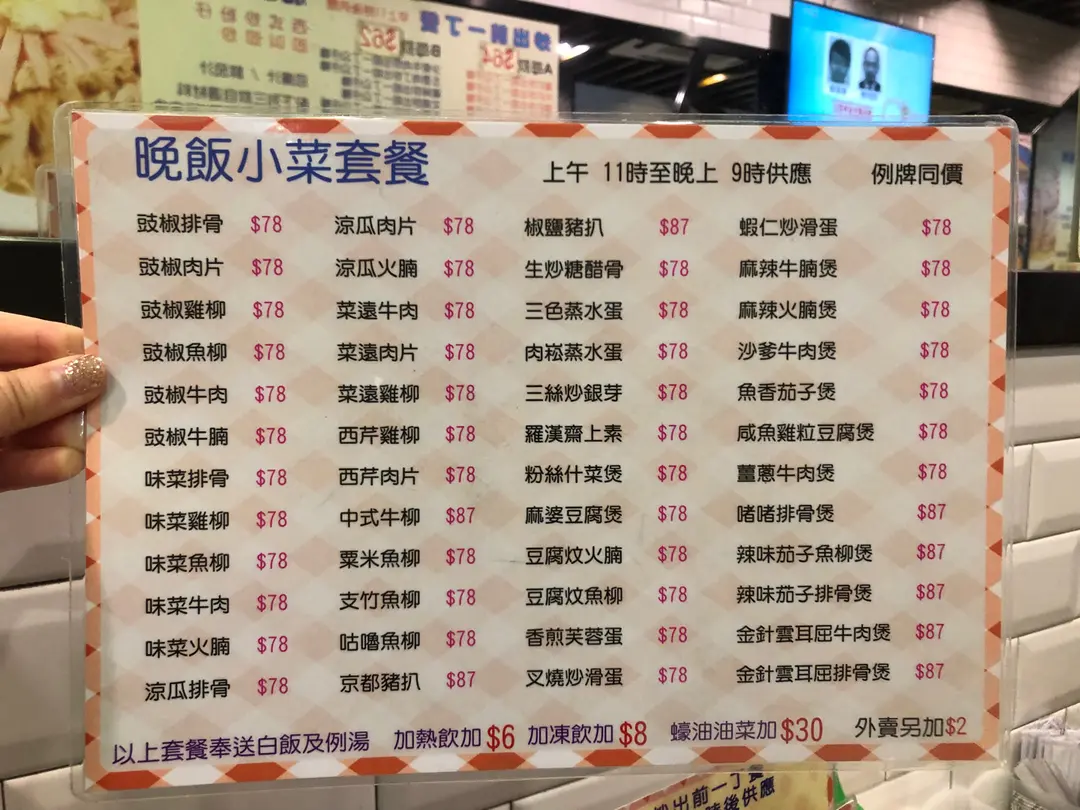 炒出前一丁餐
A餐飲$64
B餐飲$62
晚飯小菜套餐 上午 11時至晚上 9時供應 例牌同價
豉椒排骨 $78 涼瓜肉片 $78 椒鹽豬扒 $87 蝦仁炒滑蛋 $78
豉椒肉片 $78 涼瓜火腩 $78 生炒糖醋骨 $78 麻辣牛腩煲 $78
豉椒雞柳 $78 菜遠牛肉 $78 三色蒸水蛋 $78 麻辣火腩煲 $78
豉椒魚柳 $78 菜遠肉片 $78 肉崧蒸水蛋 $78 沙爹牛肉煲 $78
豉椒牛肉 $78 菜遠雞柳 $78 三絲炒銀芽 $78 魚香茄子煲 $78
豉椒牛腩 $78 西芹雞柳 $78 羅漢齋上素 $78 咸魚雞粒豆腐煲 $78
味菜排骨 $78 西芹肉片 $78 粉絲什菜煲 $78 薑蔥牛肉煲 $78
味菜雞柳 $78 中式牛柳 $87 麻婆豆腐煲 $78 啫啫排骨煲 $87
味菜魚柳 $78 粟米魚柳 $78 豆腐炆火腩 $78 辣味茄子魚柳煲 $87
味菜牛肉 $78 支竹魚柳 $78 豆腐炆魚柳 $78 辣味茄子排骨煲 $87
味菜火腩 $78 咕嚕魚柳 $78 香煎芙蓉蛋 $78 金針雲耳屈牛肉煲 $87
涼瓜排骨 $78 京都豬扒 $87 叉燒炒滑蛋 $78 金針雲耳屈排骨煲 $87
以上套餐奉送白飯及例湯 加熱飲加$6 加凍飲加$8 蠔油油菜加$30 外賣另加$2
炒出前一丁餐
時後供應